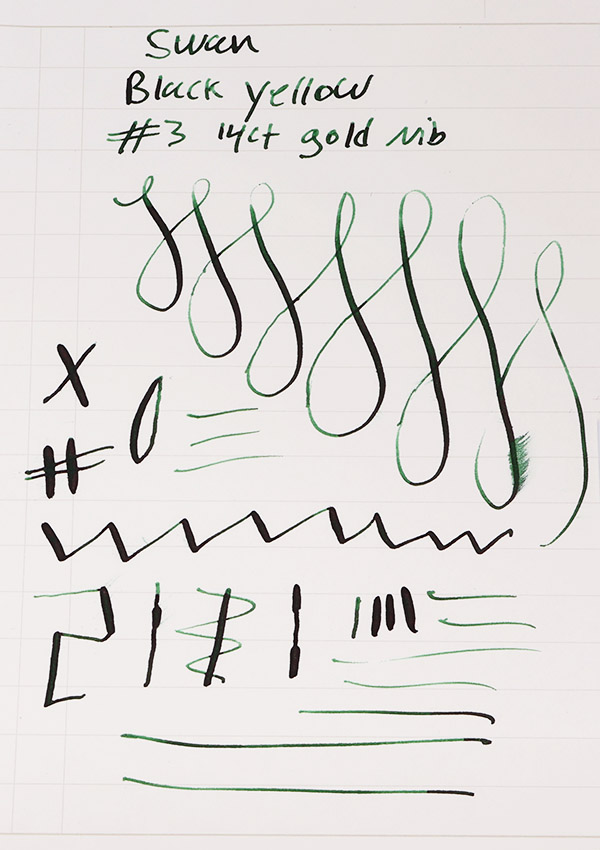 Swan
Black yellow
#3 14ct gold nib
X
#